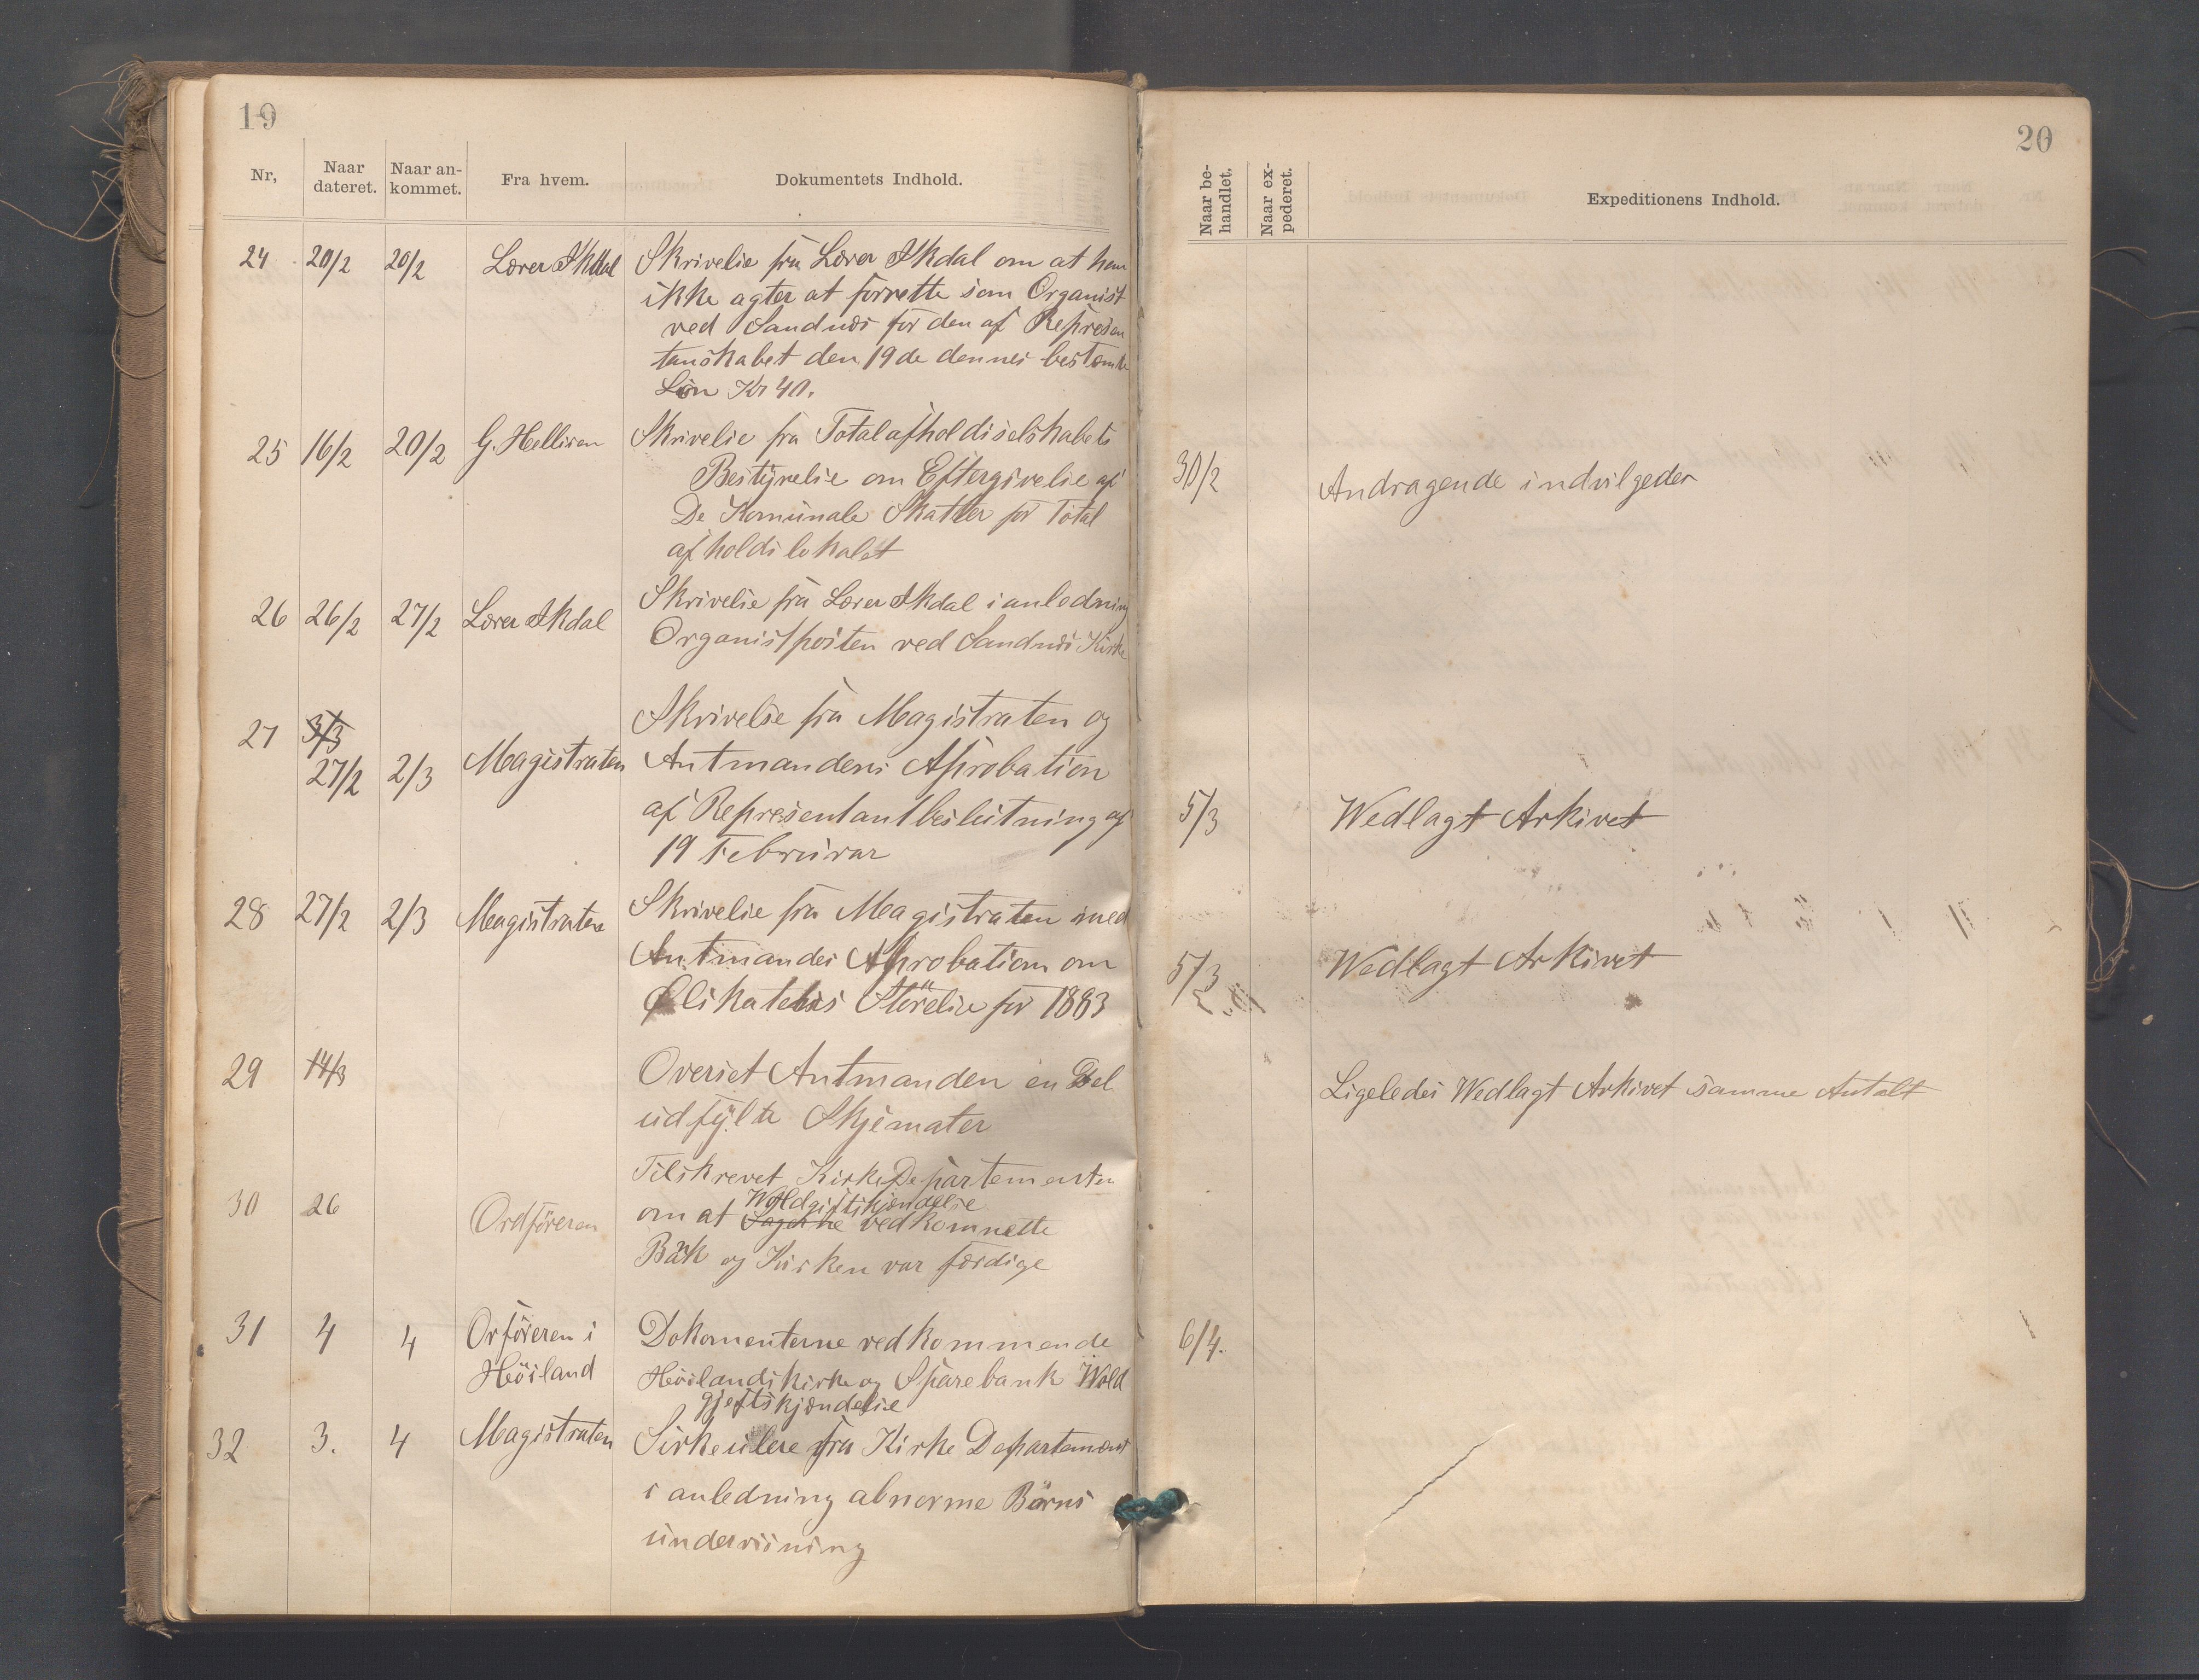 19
Nr,
Naar dateret.
Naar an-kommet.
Fra hvem.
Dokumentets Indhold.
24 20/2 20/2 Lærer Skdal Skrivelse fra Lærer Skdal om at han
ikke agter at forrette som Organist
ved Sandnæs for den af Represen
tanskabet den 19de dennes bestemte
Løn Kr 40.
25 16/2 20/2 G. Hellisen Skrivelse fra Totalafholdsselskabets
Bestyrelse om Eftergivelse af
De Komunale Skatter for Total
afholdslokalet
26 26/2 27/2 Lærer Skdal Skrivelse fra Lærer Skdal i anledning
Organistposten ved Sandnæs Kirke
27 3/3 Skrivelse fra Magistraten og
27/2 2/3 Magistraten Amtmandens Aprobation
af Representantbeslutning af
19 Februrar
28 27/2 2/3 Magistraten Skrivelse fra Magistraten med
Amtmandes Aprobation om
Störelse for 1883
29 14/3 Overset Amtmanden en Del
udfylte Skjemater
Tilskrevet KirkeDepartementen
30 26 Ordföreren om at Sagerne Woldgiftskjendelse vedkomnette
Bank og Kirken var færdige
31 4 4 Orföreren i Dokomenterne vedkommende
Höiland Höilands kirke og Sparebank Wold
gjeftskjendelse
32 3. 4 Magistraten Sirkeulere fra Kirke Departement
i anledning abnorme Börns
underviisning
20
Naar be-handlet.
Naar ex-pederet.
Expeditionens Indhold.
30/2 Andragende indvilgedes
5/3 Wedlagt Arkivet
5/3 Wedlagt Arkivet
Ligeledes Wedlagt Arkivet samme Antalt
6/4.